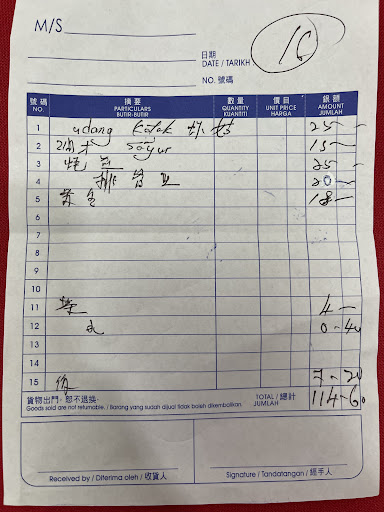 M/S
16
日期
DATE / TARIKH
NO. 號碼
號碼 NO. 摘要 PARTICULARS BUTIR-BUTIR 數量 QUANTITY KUANTITI 價目 UNIT PRICE HARGA 銀額 AMOUNT JUMLAH
1 udang Katak 25-
2 sayur 15-
3 25-
4 排骨 20-
5 18-
6
7
8
9
10
11 4-
12 0-40
13
14
15 7-20
貨物出門，恕不退換. TOTAL / 總計 JUMLAH 114-60
Goods sold are not returnable. / Barang yang sudah dijual tidak boleh dikembalikan.
Received by / Diterima oleh / 收貨人 Signature / Tandatangan / 經手人